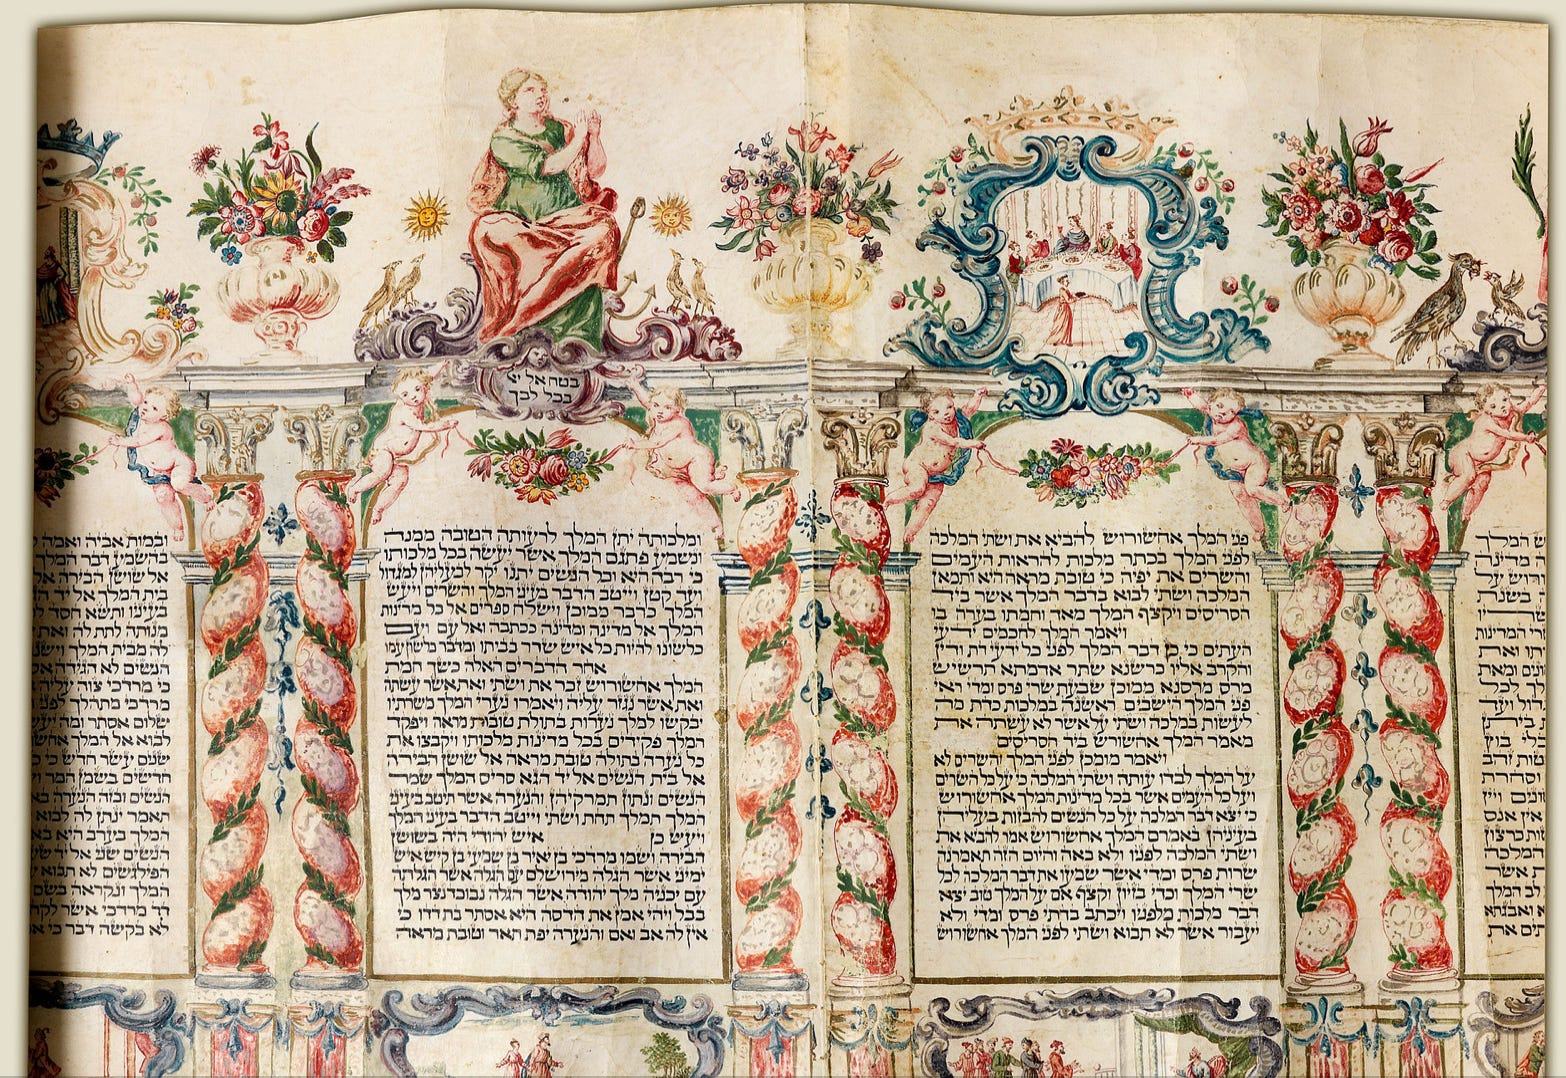 ש המלך
פני המלך אחשורוש להביא את ושתי המלכה
לפני המלך בכתר מלכות להראות העמים
והשרים את יפיה כי טובת מראה היא ותמאן
המלכה ושתי לבוא בדבר המלך אשר ביד
הסריסים ויקצף המלך מאד וחמתו בערה בו
ויאמר המלך לחכמים ידעי
העתים כי כן דבר המלך לפני כל ידעי דת ודין
והקרב אליו כרשנא שתר אדמתא תרשיש
מרס מרסנא ממוכן שבעת שרי פרס ומדי ראי
פני המלך הישבים ראשנה במלכות כדת מה
לעשות במלכה ושתי על אשר לא עשתה את
מאמר המלך אחשורוש ביד הסריסים
ויאמר מומכן לפני המלך והשרים לא
על המלך לבדו עותה ושתי המלכה כי על כל השרים
ועל כל העמים אשר בכל מדינות המלך אחשורוש
כי יצא דבר המלכה על כל הנשים להבזות בעליהן
בעיניהן באמרם המלך אחשורוש אמר להביא את
ושתי המלכה לפניו ולא באה והיום הזה תאמרנה
שרות פרס ומדי אשר שמעו את דבר המלכה לכל
שרי המלך וכדי בזיון וקצף אם על המלך טוב יצא
דבר מלכות מלפניו ויכתב בדתי פרס ומדי ולא
יעבור אשר לא תבוא ושתי לפני המלך אחשורוש
בטח אל יי
בכל לבך
ומלכותה יתן המלך לרעותה הטובה ממנה
ונשמע פתגם המלך אשר יעשה בכל מלכותו
כי רבה היא וכל הנשים יתנו יקר לבעליהן למגדול
ועד קטן וייטב הדבר בעיני המלך והשרים ויעש
המלך כדבר ממוכן וישלח ספרים אל כל מדינות
המלך אל מדינה ומדינה ככתבה ואל עם ועם
כלשונו להיות כל איש שרר בביתו ומדבר כלשון עמו
אחר הדברים האלה כשך חמת
המלך אחשורוש זכר את ושתי ואת אשר עשתה
ואת אשר נגזר עליה ויאמרו נערי המלך משרתיו
יבקשו למלך נערות בתולות טובות מראה ויפקד
המלך פקידים בכל מדינות מלכותו ויקבצו את
כל נערה בתולה טובת מראה אל שושן הבירה
אל בית הנשים אל יד הגא סריס המלך שמר
הנשים ונתון תמרקיהן והנערה אשר תיטב בעיני
המלך תמלך תחת ושתי וייטב הדבר בעיני המלך
ויעש כן איש יהודי היה בשושן
הבירה ושמו מרדכי בן יאיר בן שמעי בן קיש איש
ימיני אשר הגלה מירושלים עם הגלה אשר הגלתה
עם יכניה מלך יהודה אשר הגלה נבוכדנצר מלך
בבל ויהי אמן את הדסה היא אסתר בת דדו כי
אין לה אב ואם והנערה יפת תאר וטובת מראה
ובמות אביה ואמה
אל שושן הבירה
בית המלך אל יד
בעיניו ותשא חסד
מנותה לתת לה ואת
לה מבית המלך
לא הגידה אסתר
כי מרדכי צוה עליה
שלום אסתר ומה
לבוא אל המלך
שנים עשר חדש כי
חדשים בשמן המר
הנשים ובזה הנערה
תאמר ינתן לה לבוא
המלך בערב היא
הנשים שני אל יד
הפילגשים לא תבוא
המלך ונקראה בשם
דד מרדכי אשר לקח
לא בקשה דבר כי